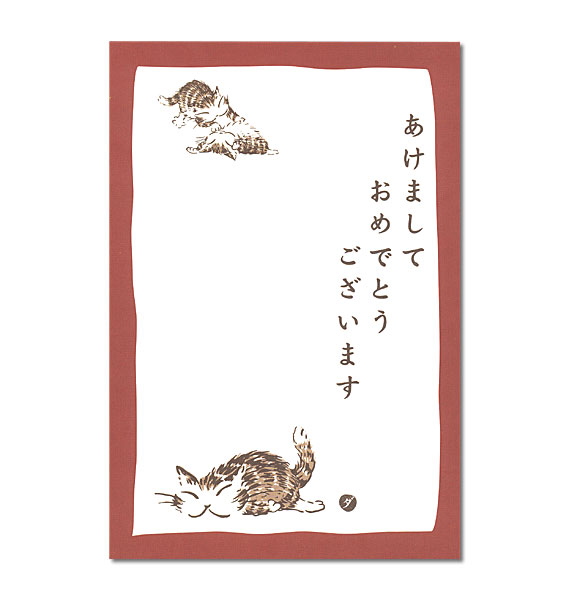 あけまして
おめでとう
ございます
ダ